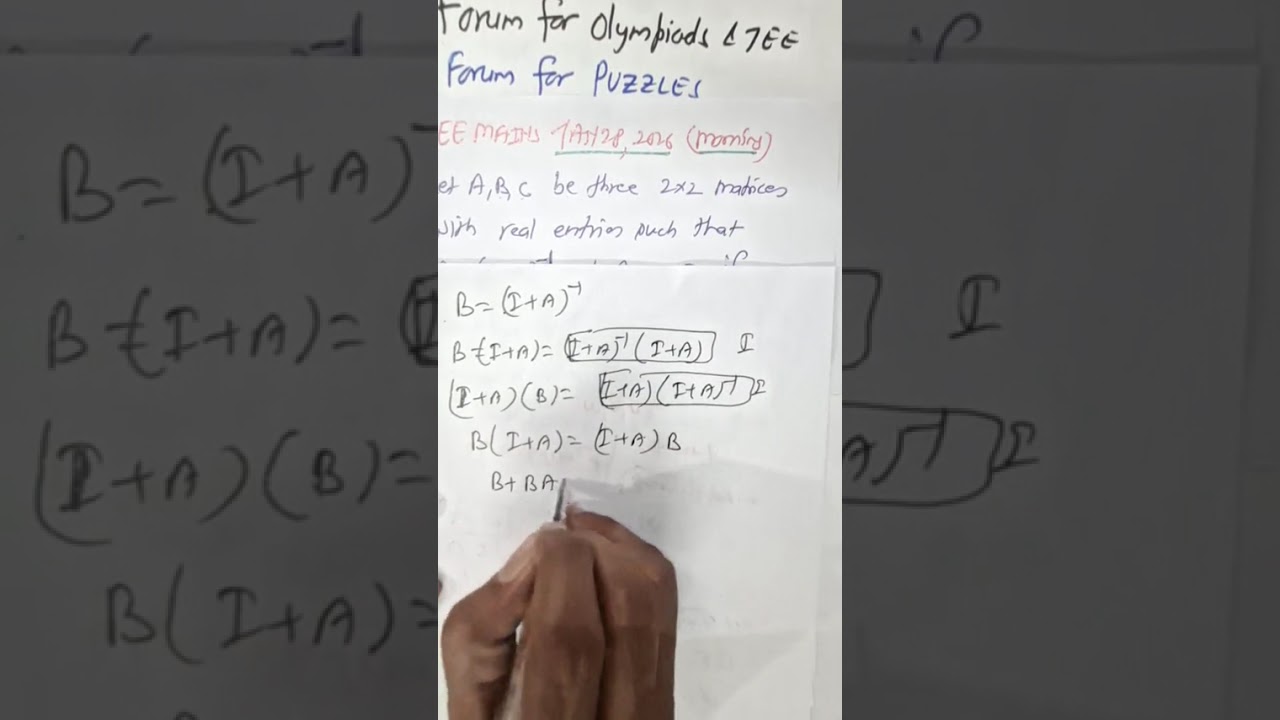 Forum for Olympiads & JEE
Forum for PUZZLES
EE MAINS JAN 28, 2026 (morning)
et A, B, C be three 2×2 matices
with real entries such that
B = (I+A)⁻¹
B (I+A) = (I+A)⁻¹ (I+A) I
(I+A)(B) = (I+A)(I+A)⁻¹ I
B(I+A) = (I+A) B
B+BA